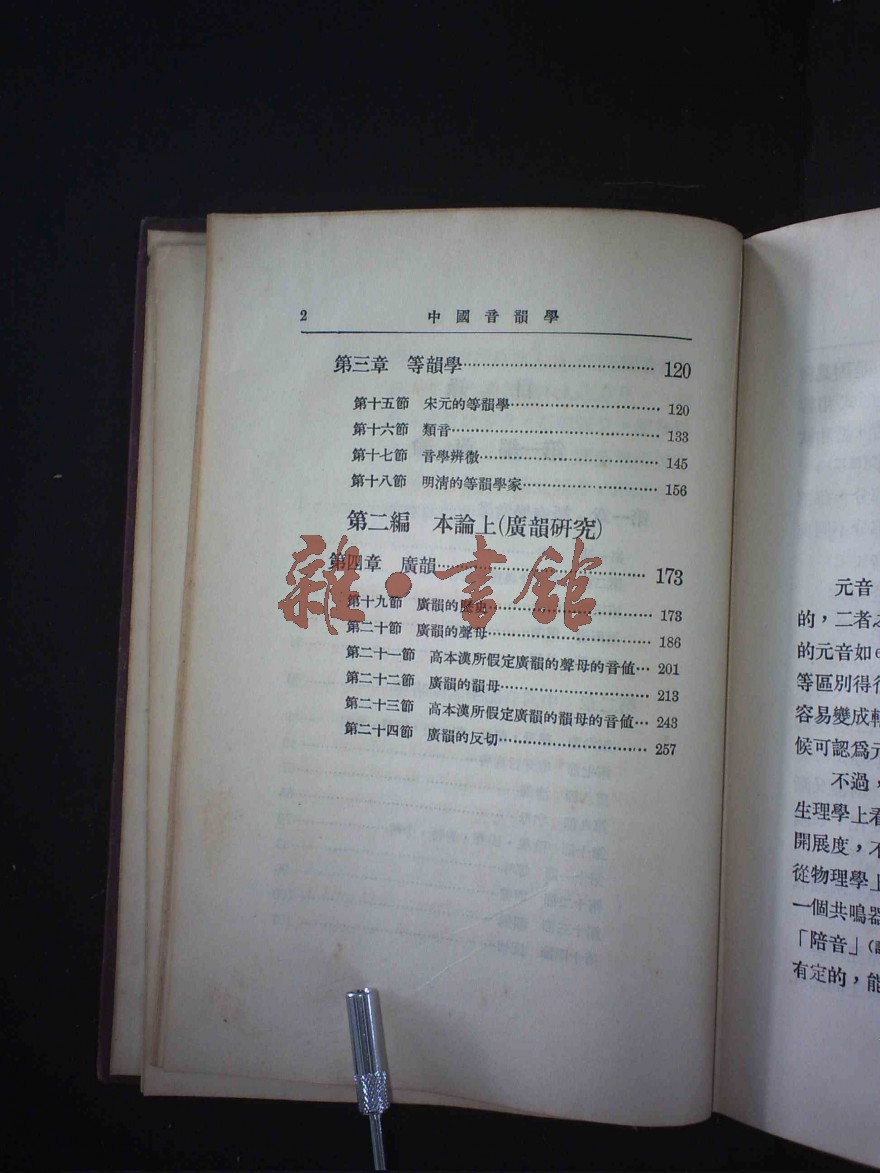 2 中國音韻學
第三章 等韻學 120
第十五節 宋元的等韻學 120
第十六節 類音 133
第十七節 音學辨微 145
第十八節 明清的等韻學家 156
第二編 本論上(廣韻研究)
第四章 廣韻 173
第十九節 廣韻的歷史 173
第二十節 廣韻的聲母 186
第二十一節 高本漢所假定廣韻的聲母的音値 201
第二十二節 廣韻的韻母 213
第二十三節 高本漢所假定廣韻的韻母的音値 243
第二十四節 廣韻的反切 257
雜·書館
元音
的，二者之
的元音如
等區別得
容易變成
候可認爲元
不過，
生理學上看
開展度，不
從物理學上
一個共鳴器
「陪音」
有定的，能